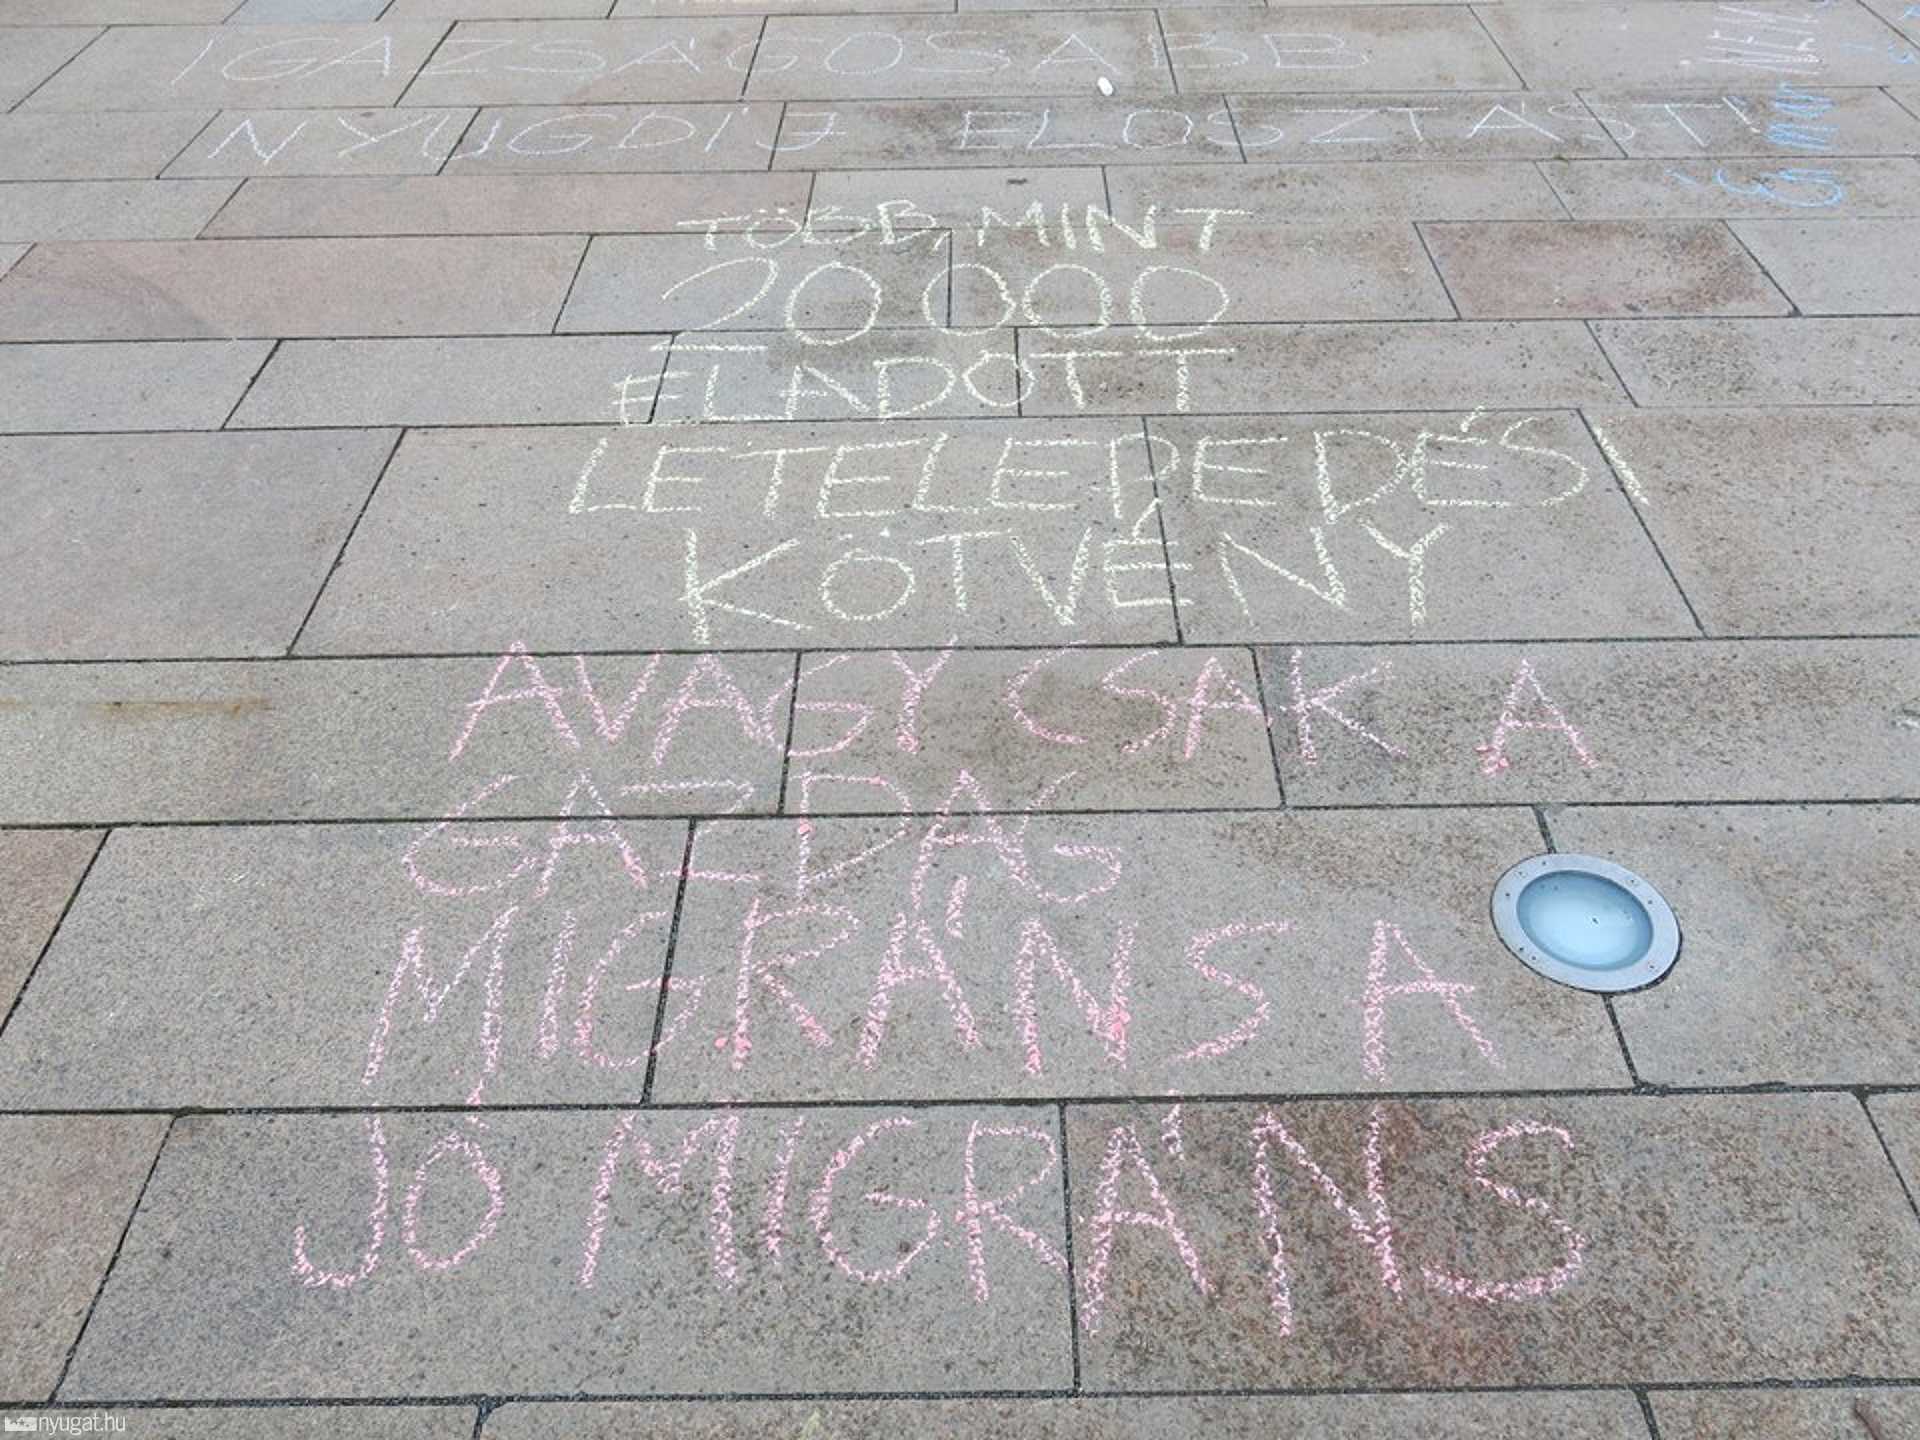 IGAZSÁGOSABB
NYUGDÍJ ELOSZTÁST!
TÖBB, MINT
20 000
ELADOTT
LETELEPEDÉSI
KÖTVÉNY
AVAGY CSAK A
GAZDAG
MIGRÁNS A
JÓ MIGRÁNS
nyugat.hu